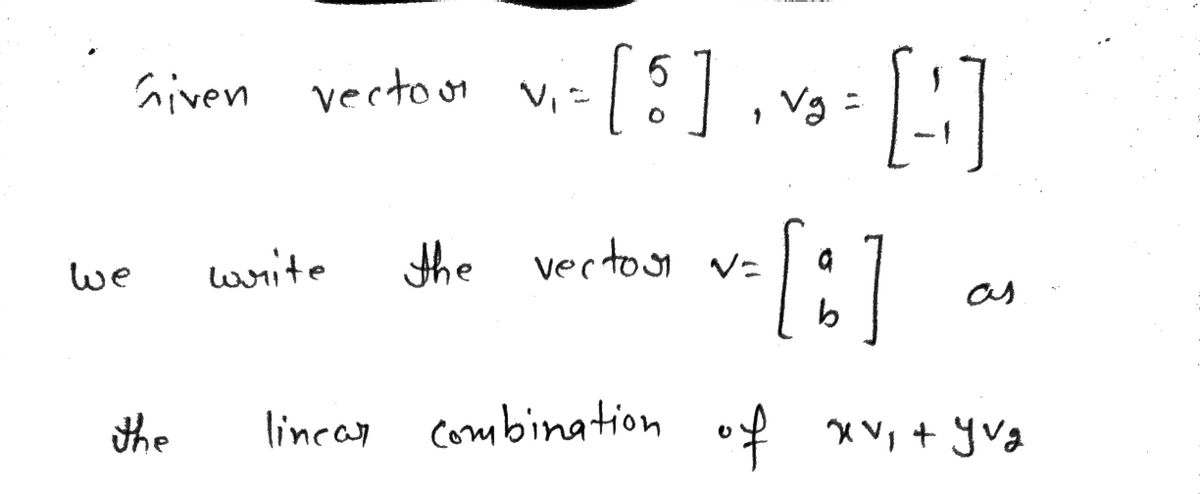 Given vector v₁ = [5 0], v₂ = [1 -1]
we write the vector v = [a b] as
the linear combination of xv₁ + yv₂